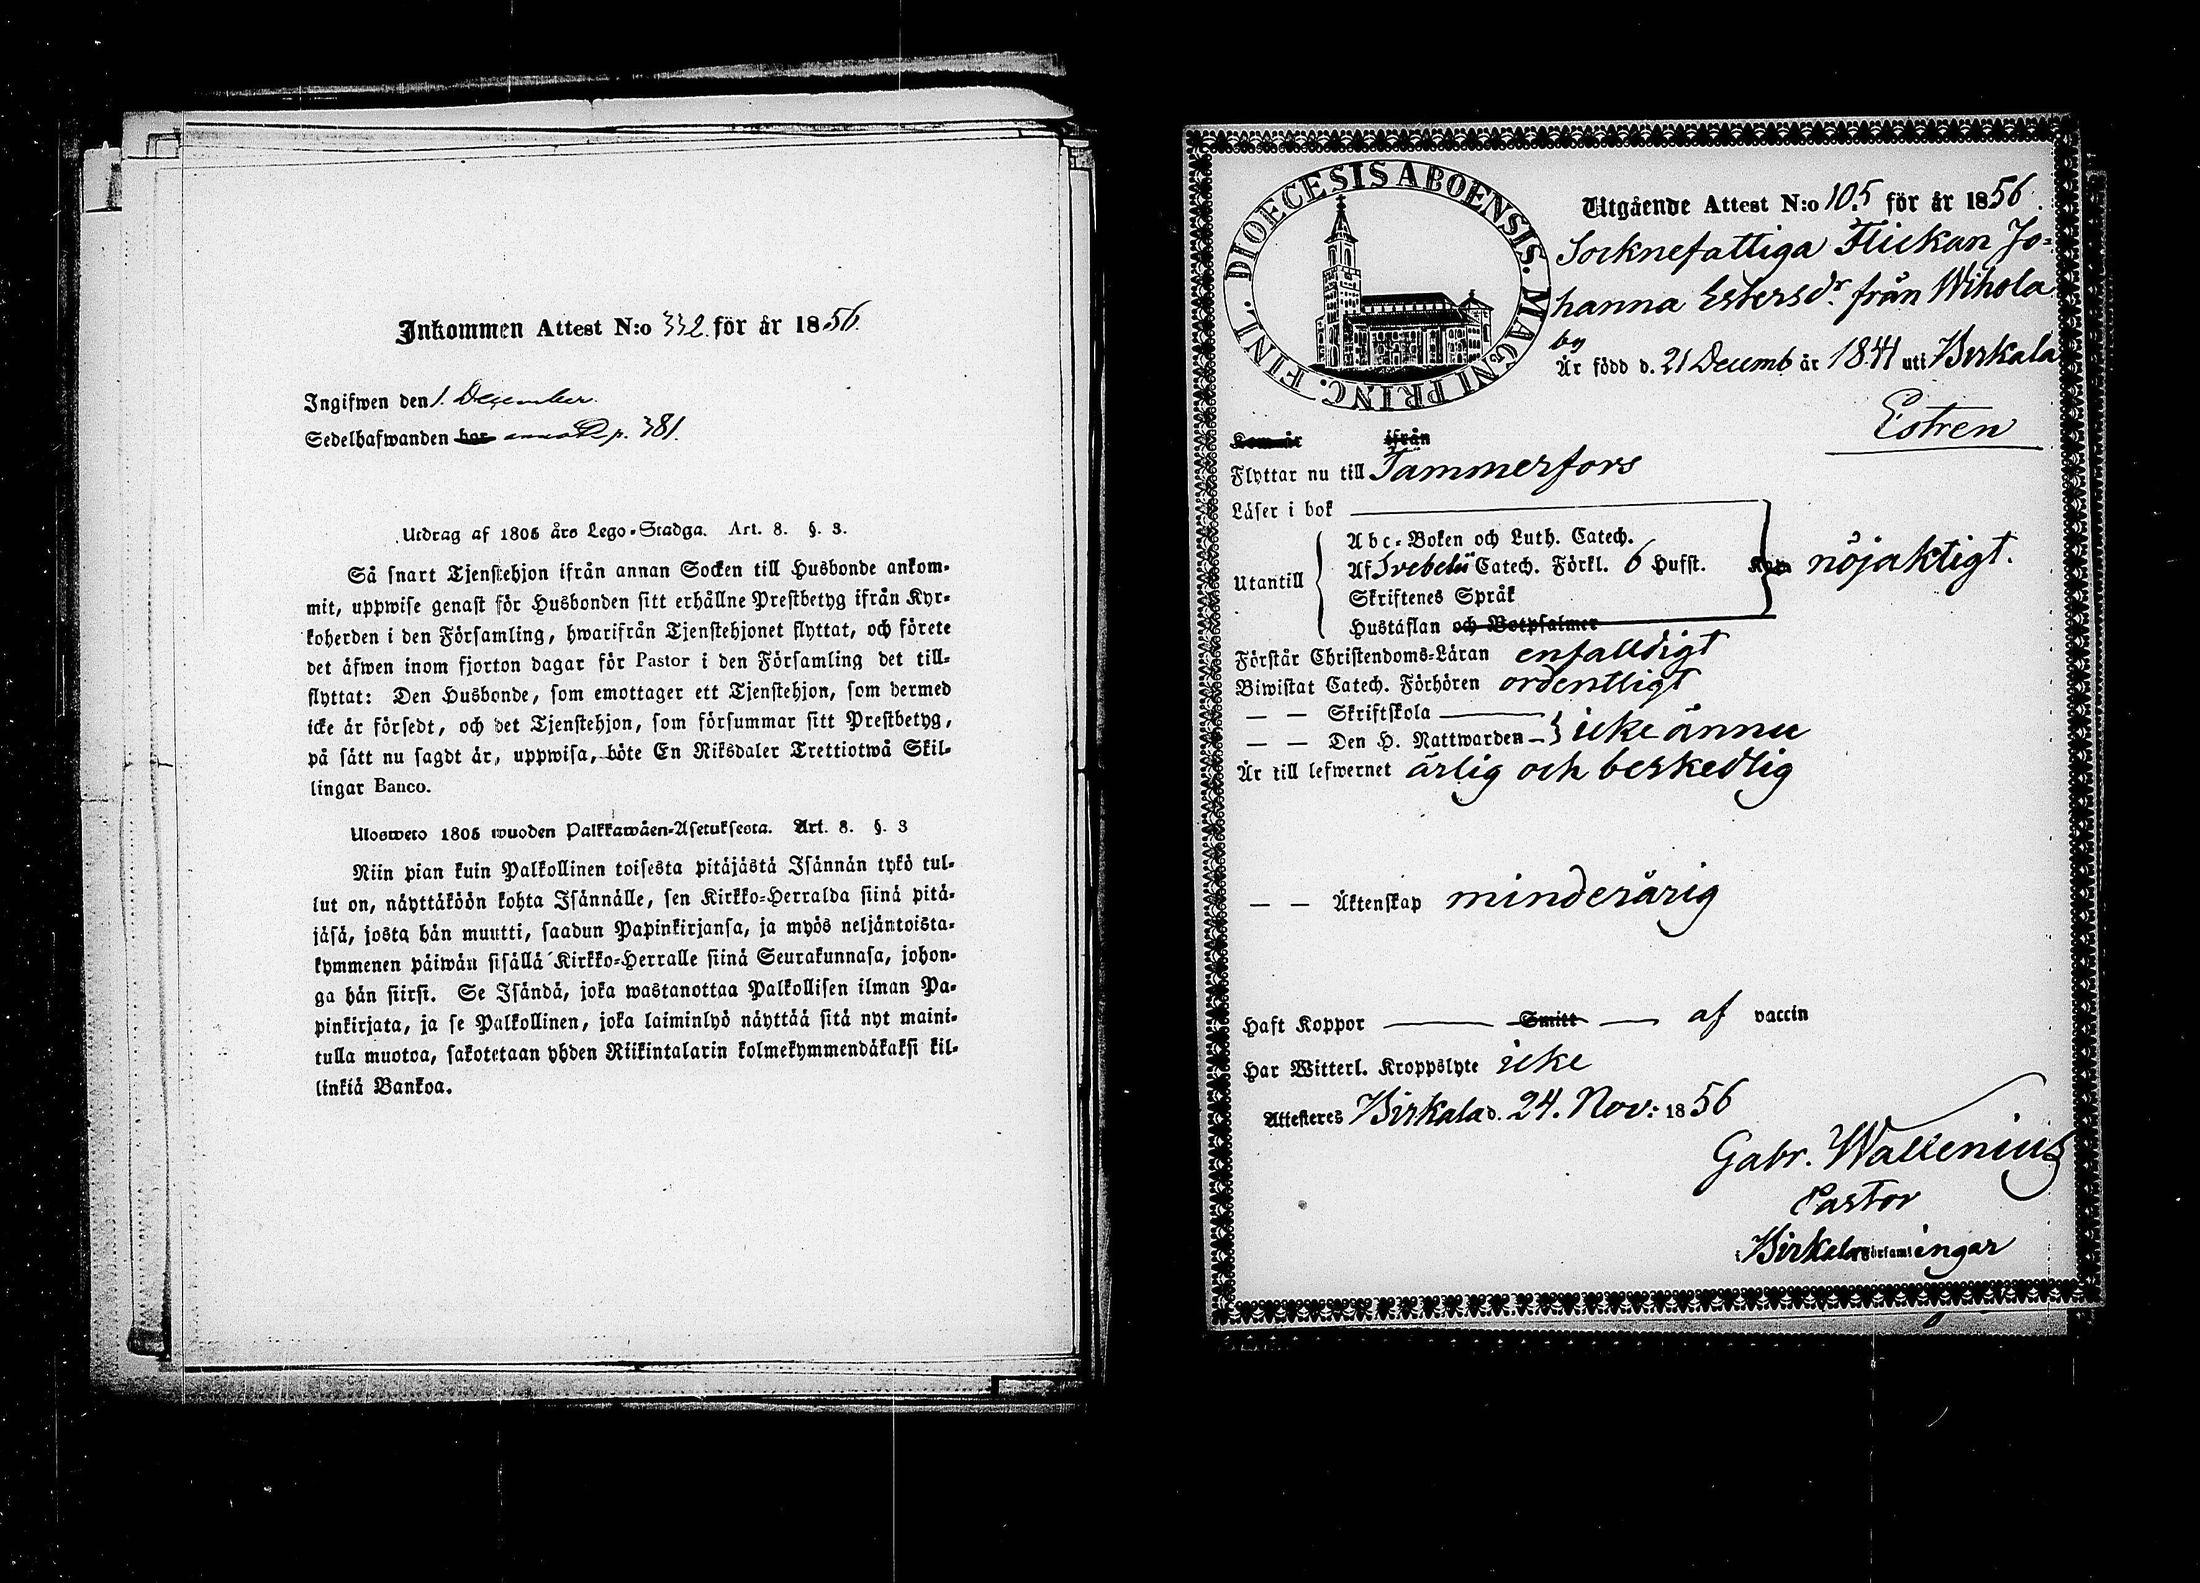 Inkommen Attest N:o 332. för år 1856.
Ingifwen den 1. December.
Sedelhafwanden har annot. p. 381.
Utdrag af 1805 års Lego-Stadga. Art. 8. §. 3.
Så snart Tjenstehjon ifrån annan Socken till Husbonde ankom-
mit, uppwise genast för Husbonden sitt erhållne Prestbetyg ifrån Kyr-
koherden i den Församling, hwarifrån Tjenstehjonet flyttat, och förete
det äfwen inom fjorton dagar för Pastor i den Församling det till-
flyttat: Den Husbonde, som emottager ett Tjenstehjon, som dermed
icke är försedt, och det Tjenstehjon, som försummar sitt Prestbetyg,
på sätt nu sagdt är, uppwisa, böte En Riksdaler Trettiotwå Skil-
lingar Banco.
Ulosweto 1805 wuoden Palkkawäen-Asetuksesta. Art. 8. §. 3
Niin pian kuin Palkollinen toisesta pitäjästä Isännän tykö tul-
lut on, näyttäköön kohta Isännälle, sen Kirkko-Herralda siinä pitä-
jäsä, josta hän muutti, saadun Papinkirjansa, ja myös neljäntoista-
kymmenen päiwän sisällä Kirkko-Herralle siinä Seurakunnasa, johon-
ga hän siirsi. Se Isändä, joka wastanottaa Palkollisen ilman Pa-
pinkirjata, ja se Palkollinen, joka laiminlyö näyttää sitä nyt maini-
tulla muotoa, sakotetaan yhden Riikintalarin kolmekymmendäkaksi kil-
linkiä Bankoa.
DIOECESIS ABOENSIS. MAGNI PRINC. FINL.
Utgående Attest N:o 105. för år 1856.
Socknefattiga Flickan Jo-
hanna Estersdr. från Wihola
by
Är född d. 21 Decemb år 1841 uti Birkala
Estren
Kom år ifrån
Flyttar nu till Tammerfors
Läser i bok
Utantill
Abc-Boken och Luth. Catech.
Af Svebelii Catech. Förkl. 6 Hufst. nöjaktigt.
Skriftenes Språk
Hustaflan och Botpsalmer
Förstår Christendoms-Läran enfalldigt
Biwistat Catech. Förhören ordentligt
— — Skriftskola
— — Den H. Nattwarden — } icke ännu
Är till lefwernet ärlig och beskedlig
— — Äktenskap minderårig
Haft Koppor — Smitt — af vaccin
Har Witterl. Kroppslyte icke
Attesteres Birkala d. 24. Nov: 1856
Gabr. Wallenius
Pastor
i Birkala Församlingar